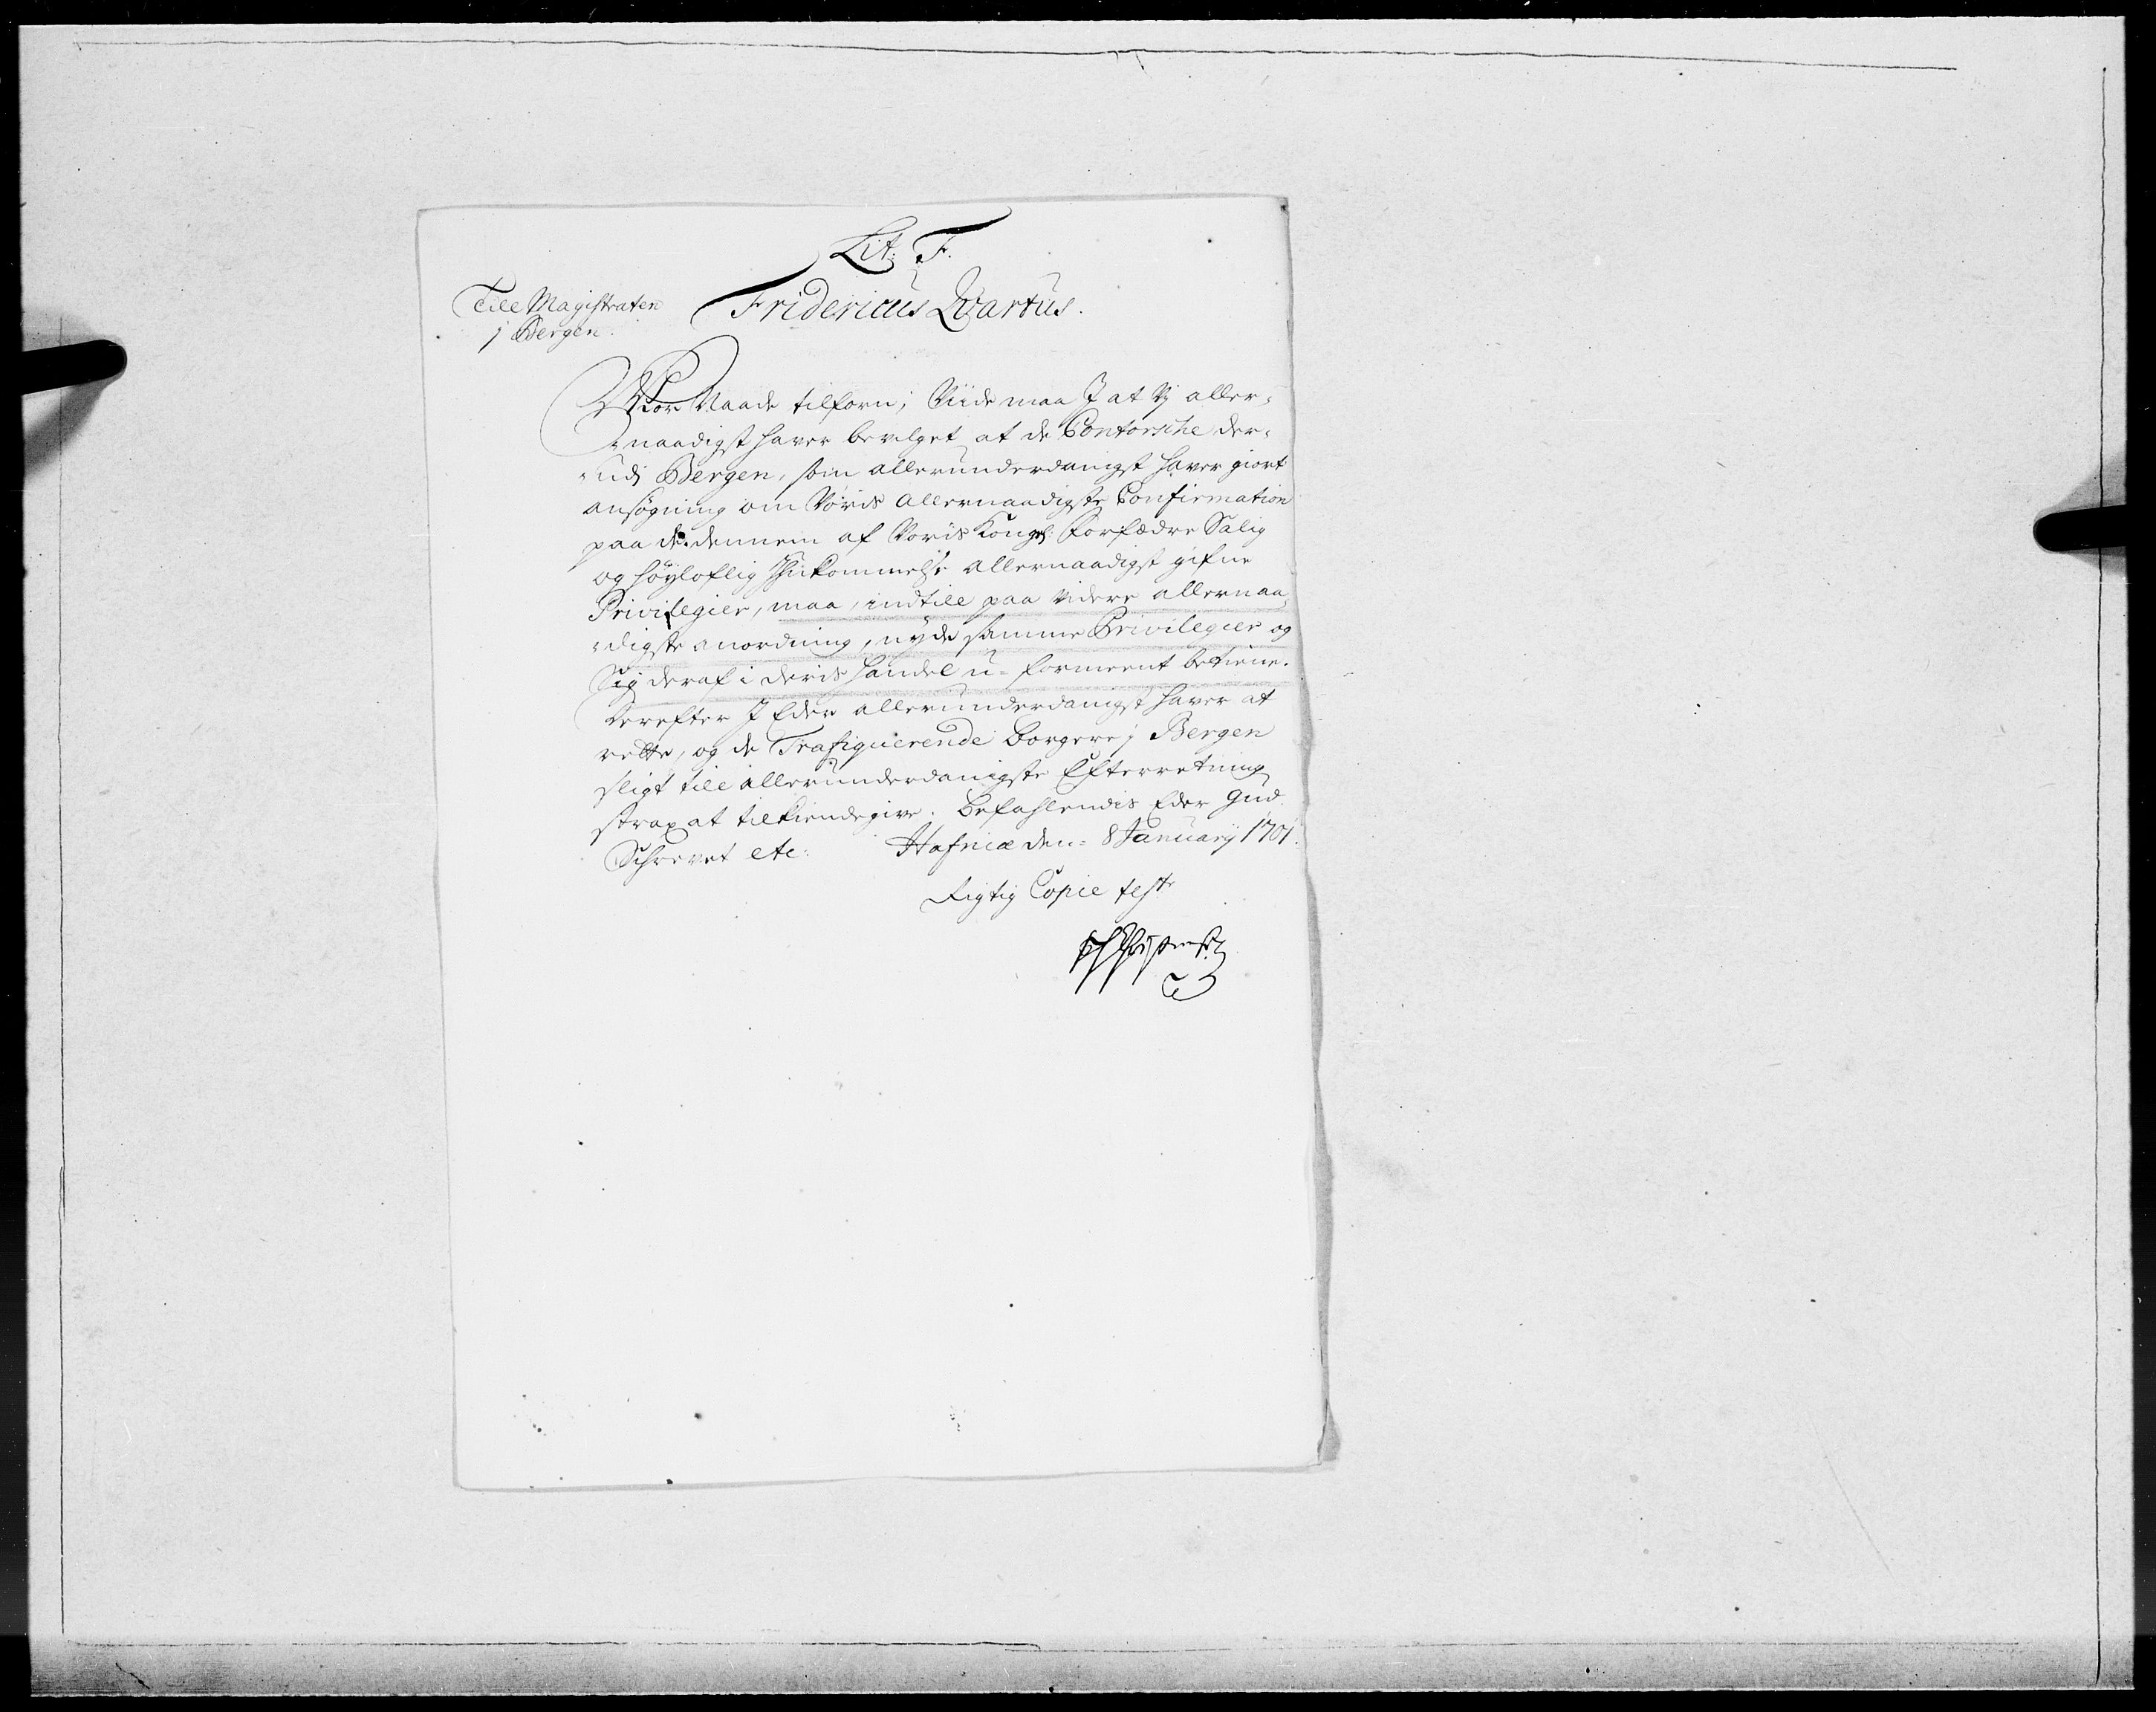 Lit. F.
Till Magistraten
j Bergen.
Fridericus Qvartus.
Vor Naade tilforn; Viide maa I at Vj aller-
naadigst haver bevilget at de Contorsche der-
udj Bergen, som allerunderdanigst haver giort
ansøgning om Voris allernaadigste Confirmation
paa de dennem af Voris Kongel: Forfædre Salig
og høyloflig Ihukommelse allernaadigst gifne
Privilegier, maa, indtill paa videre allernaa-
digste anordning, nyde samme Privilegier og
Sig deraf i deris handel u-formeent betiene.
Derefter I Eder allerunderdanigst haver at
rette, og de Trafiquerende borgere j Bergen
sligt till allerunderdanigste Efterretning
strax at tilkiendegive. Befahlendis Eder Gud.
Schrevet etc: Hafniæ den 8 January 1701.
Rigtig Copie test